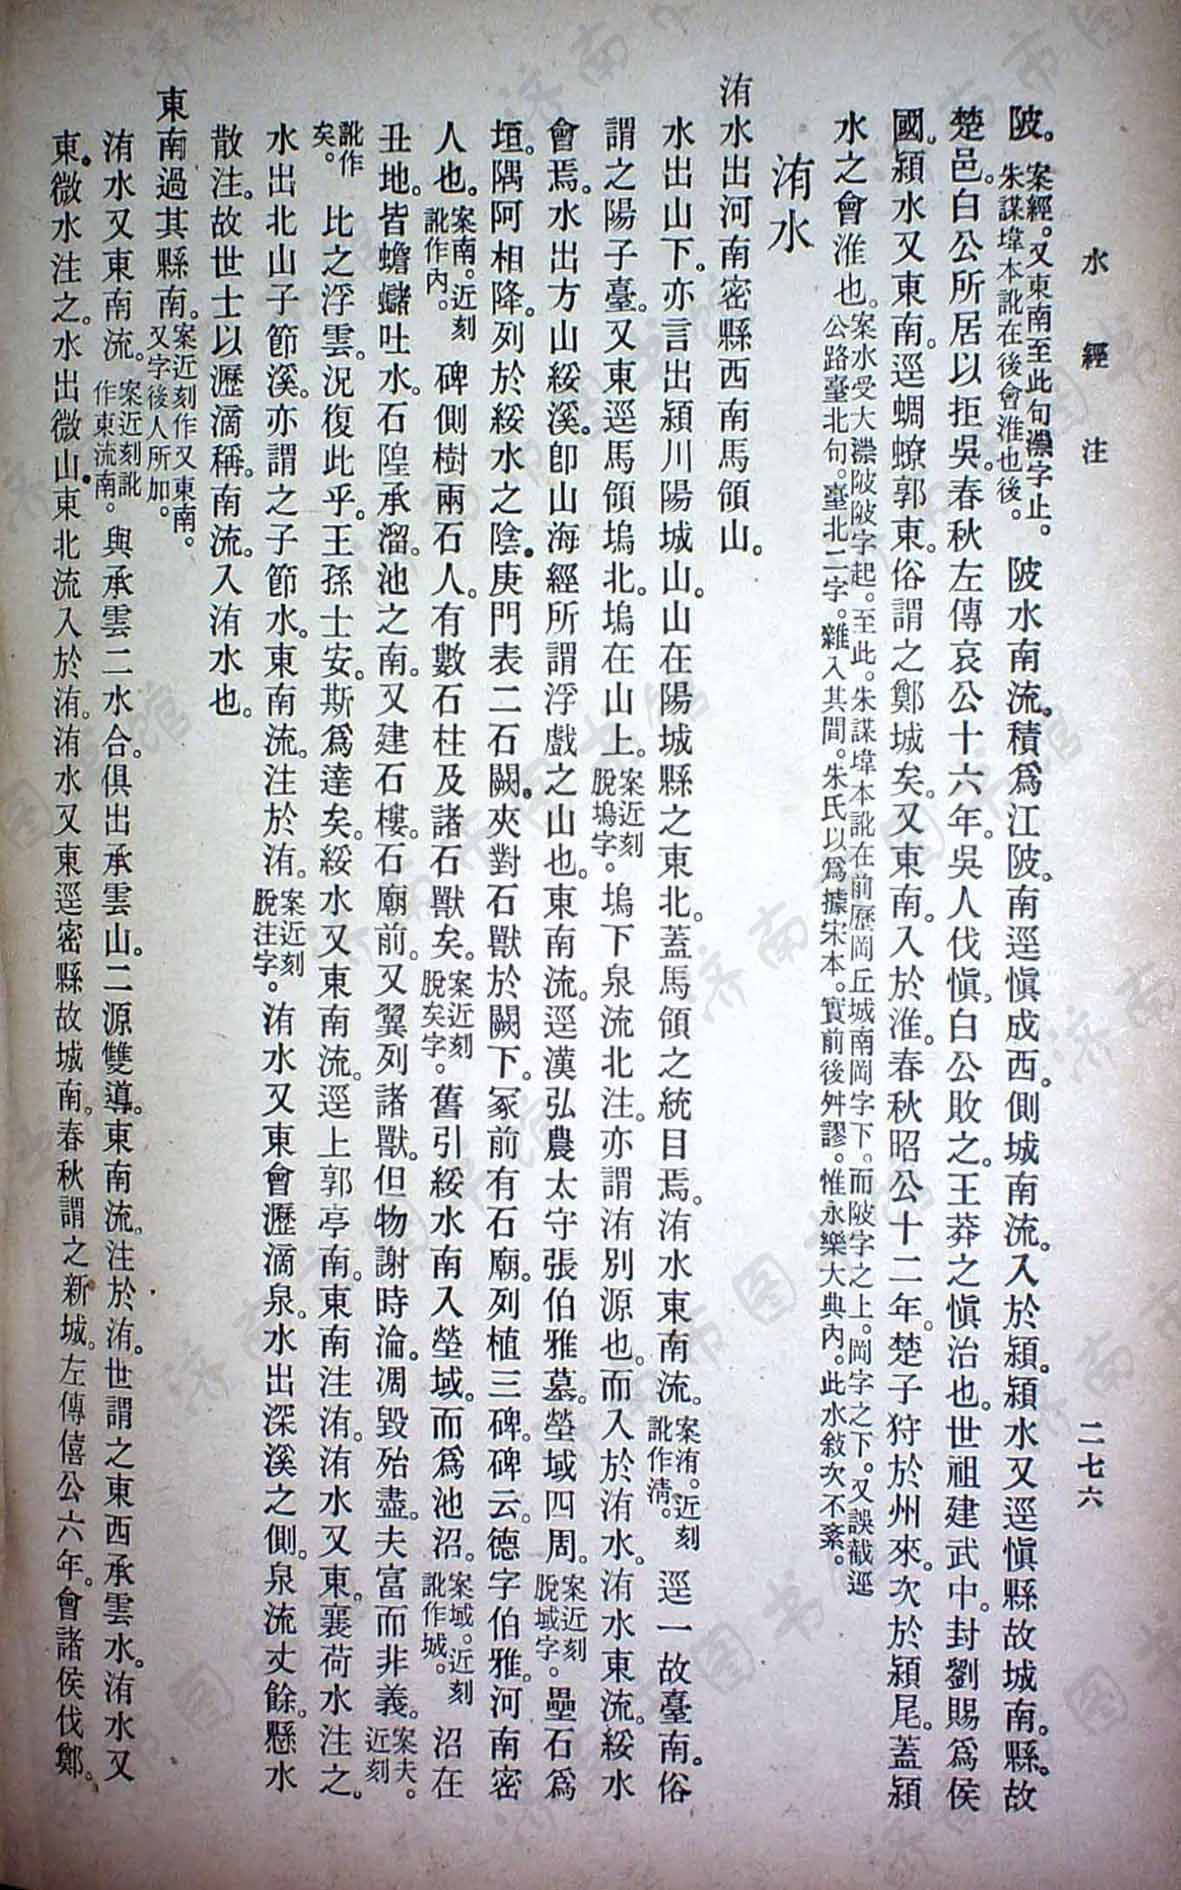 水經注
二七六
陂。案經。又東南至此句濃字止。朱謀㙔本訛在後會淮也後。陂水南流。積爲江陂。南逕愼成西。側城南流。入於潁。潁水又逕愼縣故城南。縣。故
楚邑。白公所居以拒吳。春秋左傳哀公十六年。吳人伐愼。白公敗之。王莽之愼治也。世祖建武中。封劉賜爲侯
國。潁水又東南。逕蜩蟟郭東。俗謂之鄭城矣。又東南。入於淮。春秋昭公十二年。楚子狩於州來。次於潁尾。蓋潁
水之會淮也。案水受大漴陂陂字起。至此。朱謀㙔本訛在前歷岡丘城南岡字下。而陂字之上。岡字之下。又誤截逕公路臺北句。臺北二字。雜入其間。朱氏以爲據宋本。實前後舛謬。惟永樂大典內。此水敍次不紊。
洧水
洧水出河南密縣西南馬領山。
水出山下。亦言出潁川陽城山。山在陽城縣之東北。蓋馬領之統目焉。洧水東南流。案洧。近刻訛作淸。逕一故臺南。俗
謂之陽子臺。又東逕馬領塢北。塢在山上。案近刻脫塢字。塢下泉流北注。亦謂洧別源也。而入於洧水。洧水東流。綏水
會焉。水出方山綏溪。卽山海經所謂浮戲之山也。東南流。逕漢弘農太守張伯雅墓。塋域四周。案近刻脫域字。壘石爲
垣。隅阿相降。列於綏水之陰。庚門表二石闕。夾對石獸於闕下。冢前有石廟。列植三碑。碑云。德字伯雅。河南密
人也。案南。近刻訛作內。碑側樹兩石人。有數石柱及諸石獸矣。案近刻脫矣字。舊引綏水南入塋域。而爲池沼。案域。近刻訛作城。沼在
丑地。皆蟾蠩吐水。石隍承溜。池之南。又建石樓。石廟前。又翼列諸獸。但物謝時淪。凋毀殆盡。夫富而非義。案夫。近刻
訛作矣。比之浮雲。況復此乎。王孫士安。斯爲達矣。綏水又東南流。逕上郭亭南。東南注洧。洧水又東。襄荷水注之。
水出北山子節溪。亦謂之子節水。東南流。注於洧。案近刻脫注字。洧水又東會瀝滴泉。水出深溪之側。泉流丈餘。懸水
散注。故世士以瀝滴稱。南流。入洧水也。
東南過其縣南。案近刻作又東南。又字後人所加。
洧水又東南流。案近刻訛作東流南。與承雲二水合。俱出承雲山。二源雙導。東南流。注於洧。世謂之東西承雲水。洧水又
東。微水注之。水出微山。東北流入於洧。洧水又東逕密縣故城南。春秋謂之新城。左傳僖公六年。會諸侯伐鄭。